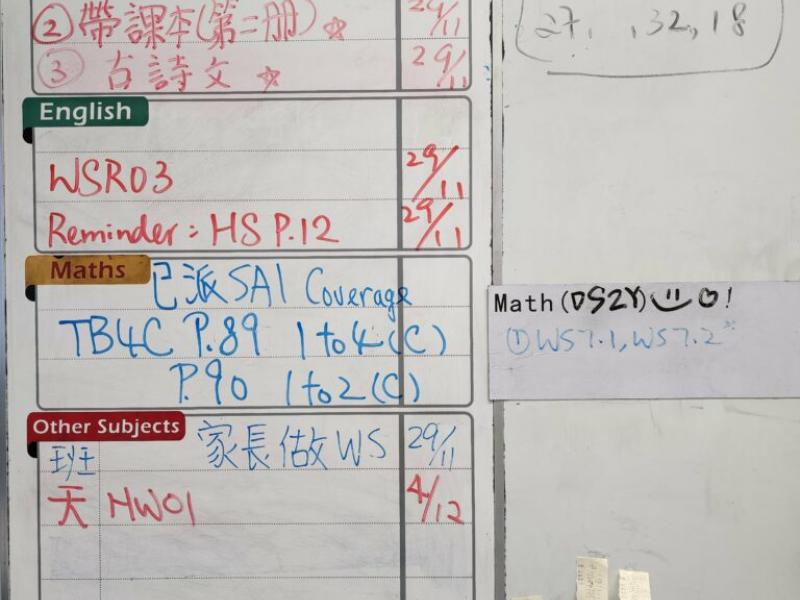 ② 帶課本(第二冊) ☆ 29/11
③ 古詩文 ☆ 29/11
27, ,32,18
English
WSR03 29/11
Reminder: HS P.12 29/11
Maths
已派 SA1 Coverage
TB4C P.89 1 to 4 (C)
P.90 1 to 2 (C)
Math (DS2Y) !
① WS7.1, WS7.2
Other Subjects
班 家長做 WS 29/11
天 HW01 4/12